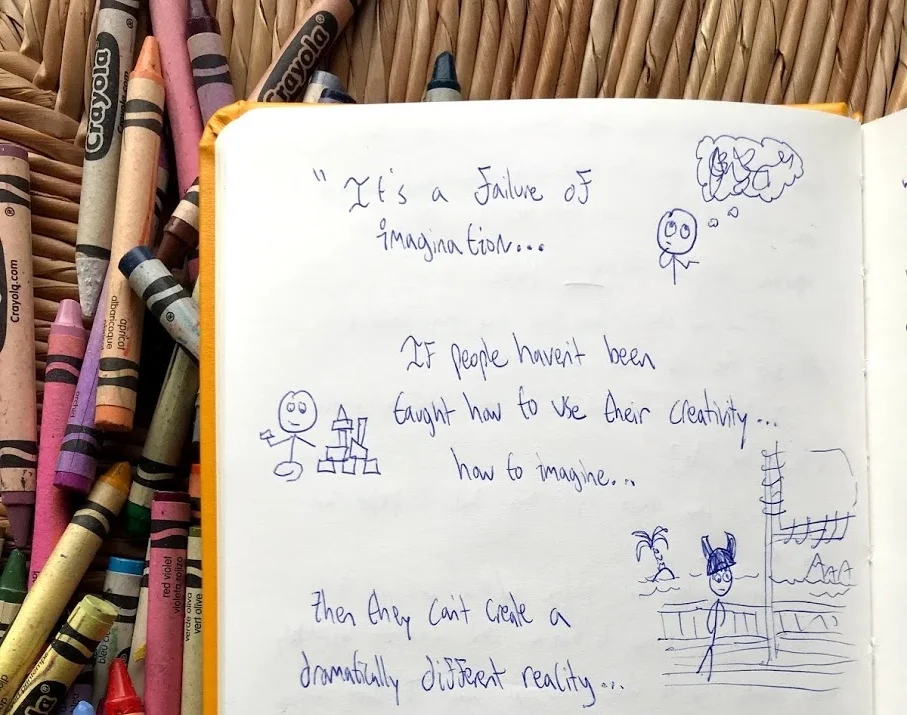 Crayola
Crayola
Crayola.com
apricot
albaricoque
orchid
red violet
violeta rojizo
Crayola
"It's a failure of
imagination...
If people haven't been
taught how to use their creativity...
how to imagine...
then they can't create a
dramatically different reality...